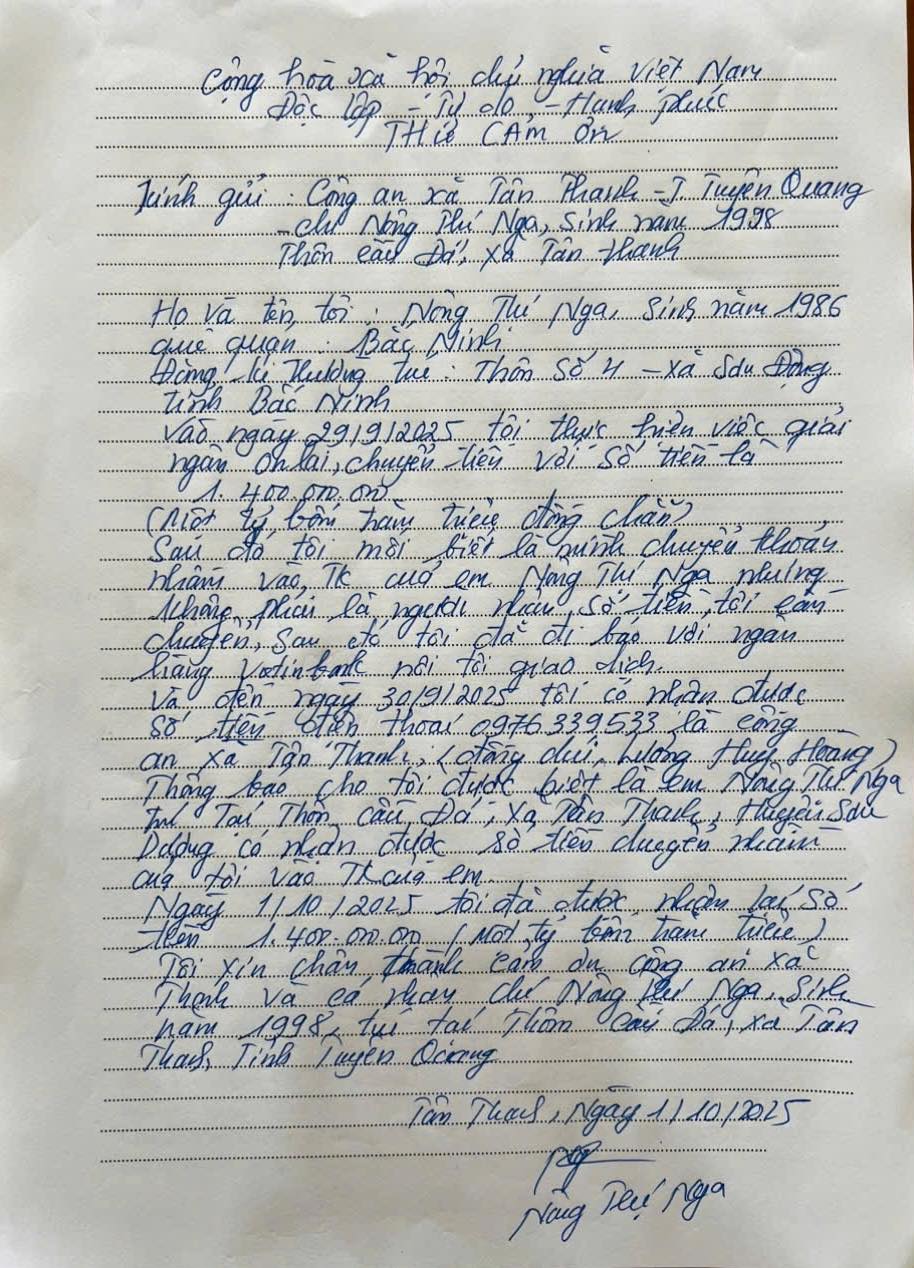 Cộng hòa xã hội chủ nghĩa Việt Nam
Độc lập - Tự do - Hạnh phúc
THƯ CẢM ƠN
Kính gửi : Công an xã Tân Thanh - T. Tuyên Quang
- chị Nông Thị Nga, sinh năm 1998
Thôn cầu Đá, xã Tân Thanh
Họ và tên tôi : Nông Thị Nga, Sinh năm 1986
quê quán : Bắc Ninh
Đăng ký thường trú : Thôn Số 4 - xã Sơn Động
tỉnh Bắc Ninh
Vào ngày 29/9/2025 tôi thực hiện việc giải
ngân chuyển tiền với số tiền là
1.400.000.000
(Một tỷ bốn trăm triệu đồng chẵn)
Sau đó tôi mới biết là mình chuyển khoản
nhầm vào TK của em Nông Thị Nga nhưng
không phải là người nhận số tiền tôi cần
chuyển, Sau đó tôi đã đi báo với ngân
hàng Vietinbank nơi tôi giao dịch.
Và đến ngày 30/9/2025 tôi có nhận được
số điện thoại 0976.339.533 là công
an xã Tân Thanh, (đồng chí, Lương Huy Hoàng)
Thông báo cho tôi được biết là em Nông Thị Nga
trú Tại Thôn cầu Đá, xã Tân Thanh, Huyện Sơn
Dương có nhận được số tiền chuyển nhầm
của tôi vào TK của em.
Ngày 1/10/2025 tôi đã được nhận lại số
tiền 1.400.000.000 (Một tỷ bốn trăm triệu)
Tôi xin chân thành cảm ơn công an xã
Thanh và cá nhân chị Nông Thị Nga, Sinh
năm 1998, trú tại Thôn Cầu Đá, xã Tân
Thanh, Tỉnh Tuyên Quang
Tân Thanh, Ngày 1/10/2025
Nông Thị Nga